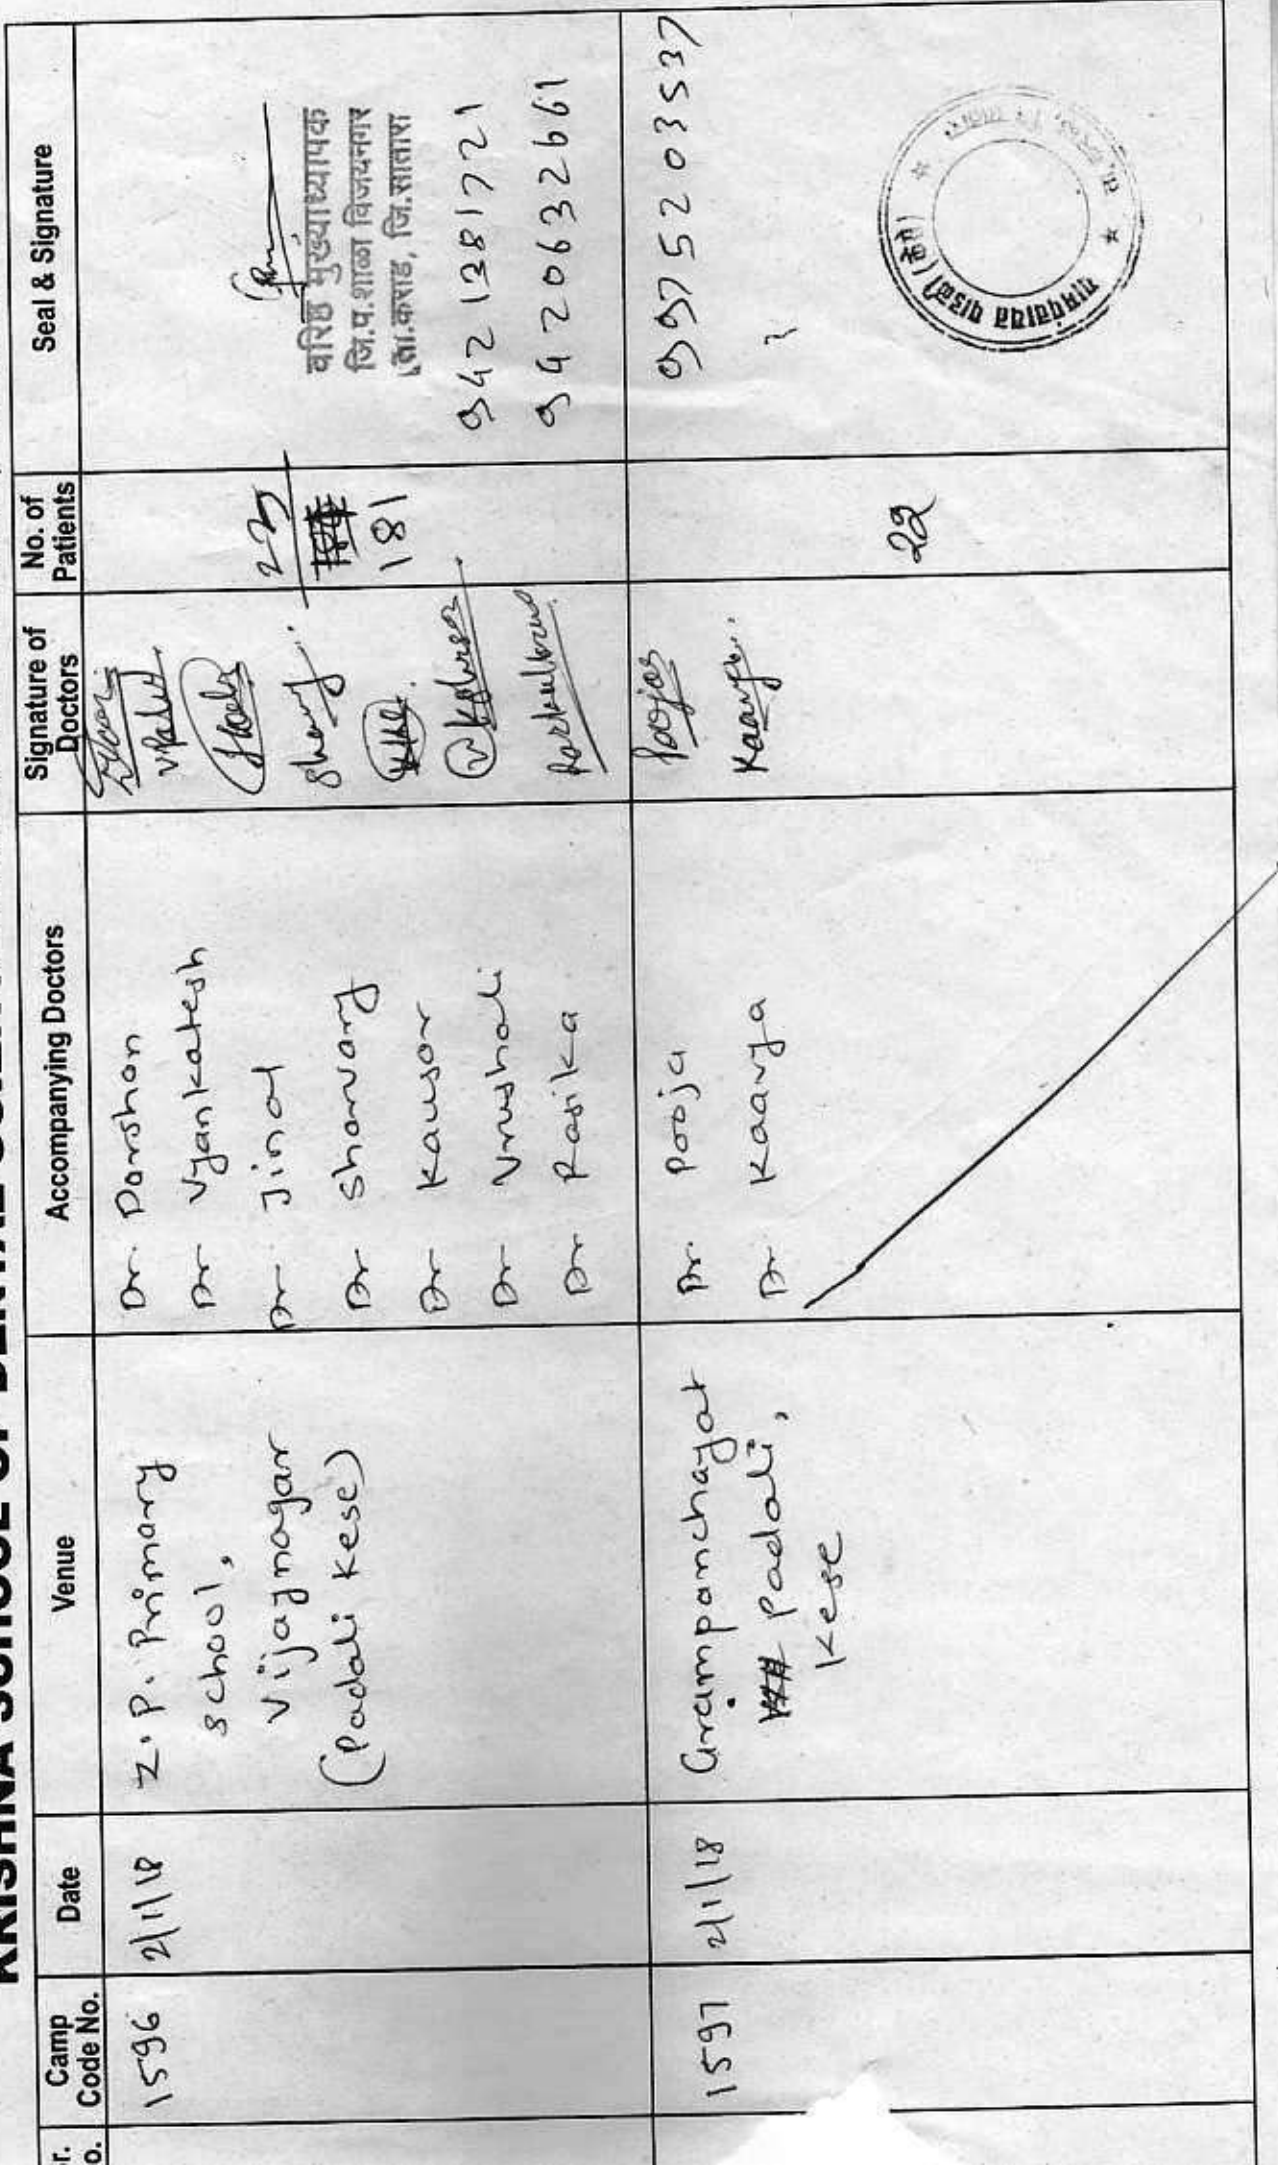 KRISHNA SCHOOL OF DENTAL
Camp Code No.
Date
Venue
Accompanying Doctors
Signature of Doctors
No. of Patients
Seal & Signature
1596
2/1/18
Z. P. Primary
school,
Vijaynagar
(Padali Kese)
Dr. Darshan
Dr Vyankatesh
Dr Jinal
Dr Sharvary
Dr Kausar
Dr Vrushali
Dr Rasika
181
वरिष्ठ मुख्याध्यापक
जि.प.शाळा विजयनगर
ता.कराड, जि.सातारा
9421381721
9420632661
1597
2/1/18
Grampanchayat
Padali,
Kese
Dr. Pooja
Dr. Kaarya
Pooja
22
9975203537
ग्रामपंचायत पाडळी (केसे)